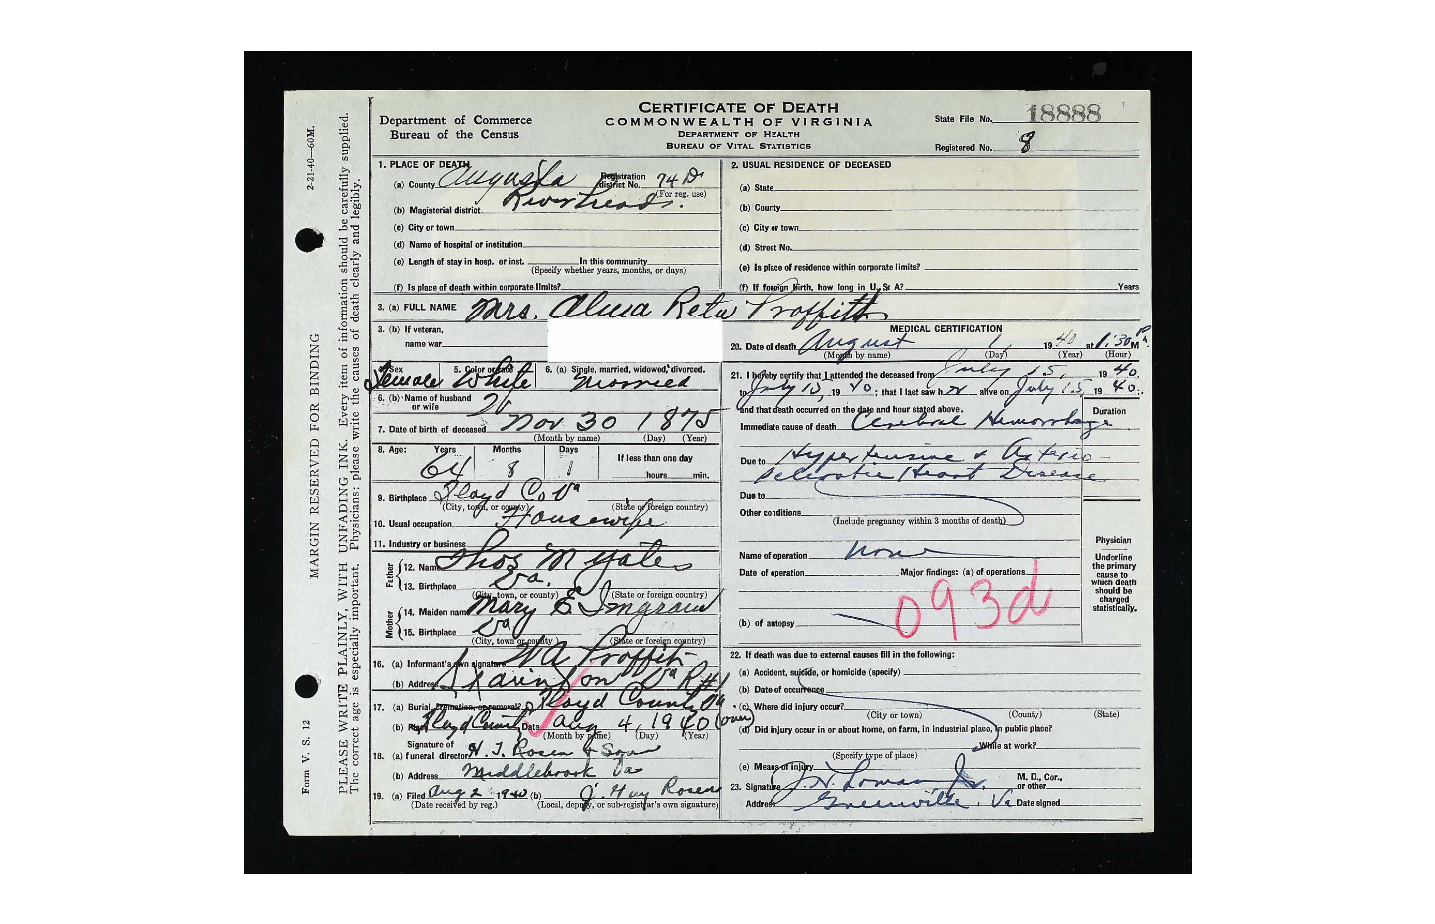 CERTIFICATE OF DEATH
COMMONWEALTH OF VIRGINIA
DEPARTMENT OF HEALTH
BUREAU OF VITAL STATISTICS
Department of Commerce
Bureau of the Census
State File No. 18888
Registered No. 8
2-21-40—60M.
MARGIN RESERVED FOR BINDING
Form V. S. 12
PLEASE WRITE PLAINLY, WITH UNFADING INK. Every item of information should be carefully supplied.
The correct age is especially important. Physicians: please write the causes of death clearly and legibly.
1. PLACE OF DEATH
(a) County Augusta Registration district No. 74 D
(For reg. use)
(b) Magisterial district Riverheads.
(c) City or town
(d) Name of hospital or institution
(e) Length of stay in hosp. or inst. In this community
(Specify whether years, months, or days)
(f) Is place of death within corporate limits?
2. USUAL RESIDENCE OF DECEASED
(a) State
(b) County
(c) City or town
(d) Street No.
(e) Is place of residence within corporate limits?
(f) If foreign birth, how long in U. S. A.? Years
3. (a) FULL NAME Mrs. Alma Reta Proffitt
3. (b) If veteran,
name war
4. Sex Female 5. Color or race White 6. (a) Single, married, widowed, divorced. Married
6. (b) Name of husband
or wife
7. Date of birth of deceased Nov 30 1875
(Month by name) (Day) (Year)
8. Age: Years Months Days If less than one day
64 8 1 hours min.
9. Birthplace Floyd Co. Va
(City, town, or county) (State or foreign country)
10. Usual occupation Housewife
11. Industry or business
Father
12. Name Thos M Yates
13. Birthplace Va.
(City, town, or county) (State or foreign country)
Mother
14. Maiden name Mary E Ingram
15. Birthplace Va
(City, town or county) (State or foreign country)
16. (a) Informant's own signature W A Proffitt
(b) Address Staunton Va R#1
17. (a) Burial, cremation, or removal? Floyd County Va
(b) Place Floyd County Date Aug 4, 1940 (over)
(Month by name) (Day) (Year)
18. (a) Signature of funeral director H. J. Rosen & Son
(b) Address Middlebrook Va
19. (a) Filed Aug 2 1940 (b) J. Hay Rosen
(Date received by reg.) (Local, deputy, or sub-registrar's own signature)
MEDICAL CERTIFICATION
20. Date of death August 1, 1940 at 1:30 P M.
(Month by name) (Day) (Year) (Hour)
21. I hereby certify that I attended the deceased from July 15, 1940.
to July 15, 1940; that I last saw her alive on July 15, 1940.
and that death occurred on the date and hour stated above.
Duration
Immediate cause of death Cerebral Hemorrhage
Due to Hypertensive & Arterio-
sclerotic Heart Disease
Due to
Other conditions
(Include pregnancy within 3 months of death)
Name of operation None
Date of operation Major findings: (a) of operations
093d
(b) of autopsy
Physician
Underline
the primary
cause to
which death
should be
charged
statistically.
22. If death was due to external causes fill in the following:
(a) Accident, suicide, or homicide (specify)
(b) Date of occurrence
(c) Where did injury occur?
(City or town) (County) (State)
(d) Did injury occur in or about home, on farm, in industrial place, in public place?
While at work?
(Specify type of place)
(e) Means of injury
23. Signature Jr. M. D., Cor., or other
Address Greenville, Va Date signed